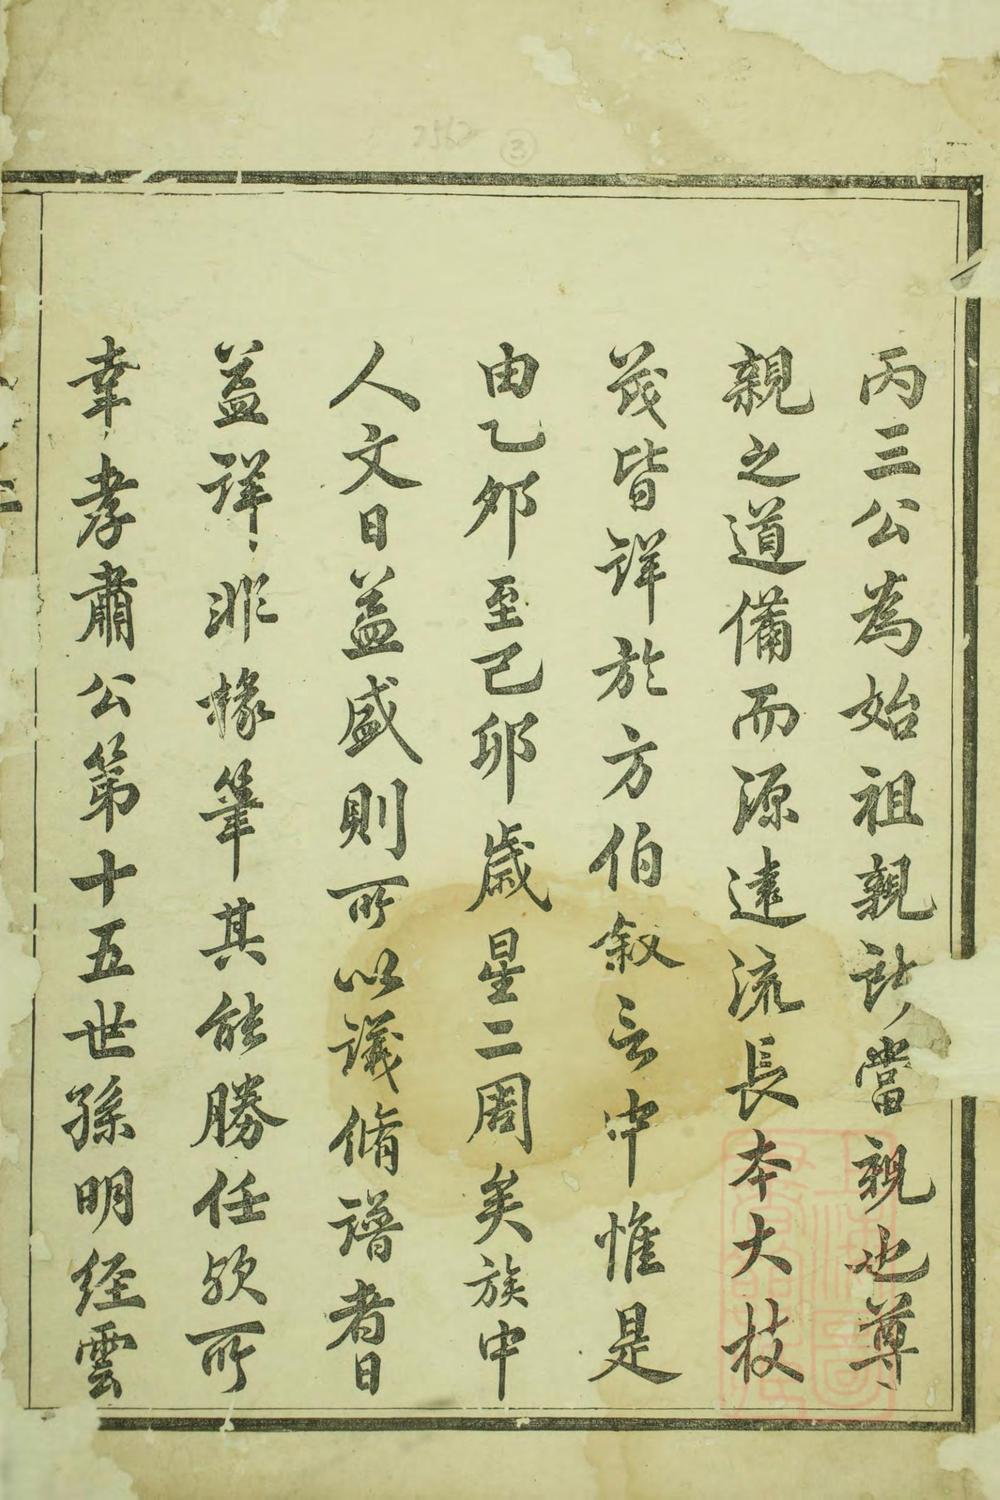 丙三公為始祖親訃當親也尊
親之道備而源遠流長本大枝
茂皆詳於方伯叙言中惟是
由乙卯至己卯歲星二周矣族中
人文日益盛則所以議脩譜者日
益詳非椽筆其能勝任歟所
幸孝肅公第十五世孫明經雲